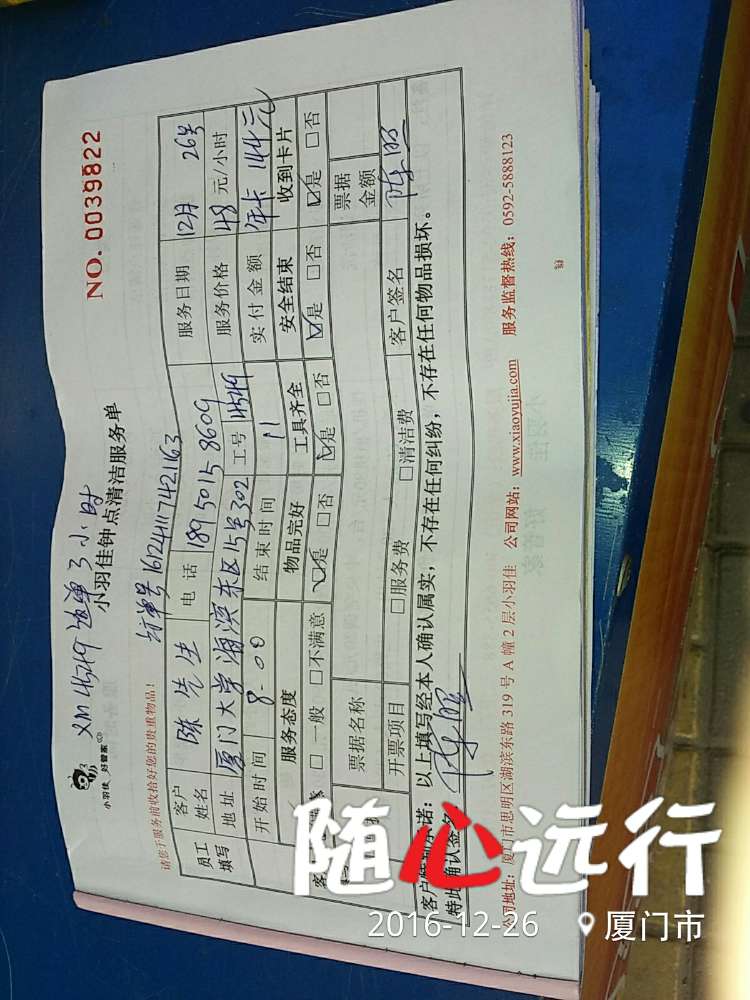 小羽佳 好管家
XM 45719 派单3小时
NO. 0039822
小羽佳钟点清洁服务单
请您于服务前收拾好您的贵重物品!
订单号 161241117142163
员工填写
客户姓名 陈先生 电话 18950158609 服务日期 12月 26号
地址 厦门大学海滨东区15号302 工号 45719 服务价格 48元/小时
开始时间 8-00 结束时间 11 实付金额 年卡 144元
服务态度 物品完好 工具齐全 安全结束 收到卡片
□一般 □不满意 ☑是 □否 ☑是 □否 ☑是 □否 ☑是 □否
票据名称 票据金额
开票项目 □服务费 □清洁费 客户签名 陈照
客户特别承诺:以上填写经本人确认属实,不存在任何纠纷,不存在任何物品损坏。
特此确认签名: 陈照
公司地址:厦门市思明区湖滨东路319号A幢2层小羽佳 公司网站:www.xiaoyujia.com 服务监督热线:0592-5888123
随心远行
2016-12-26 厦门市